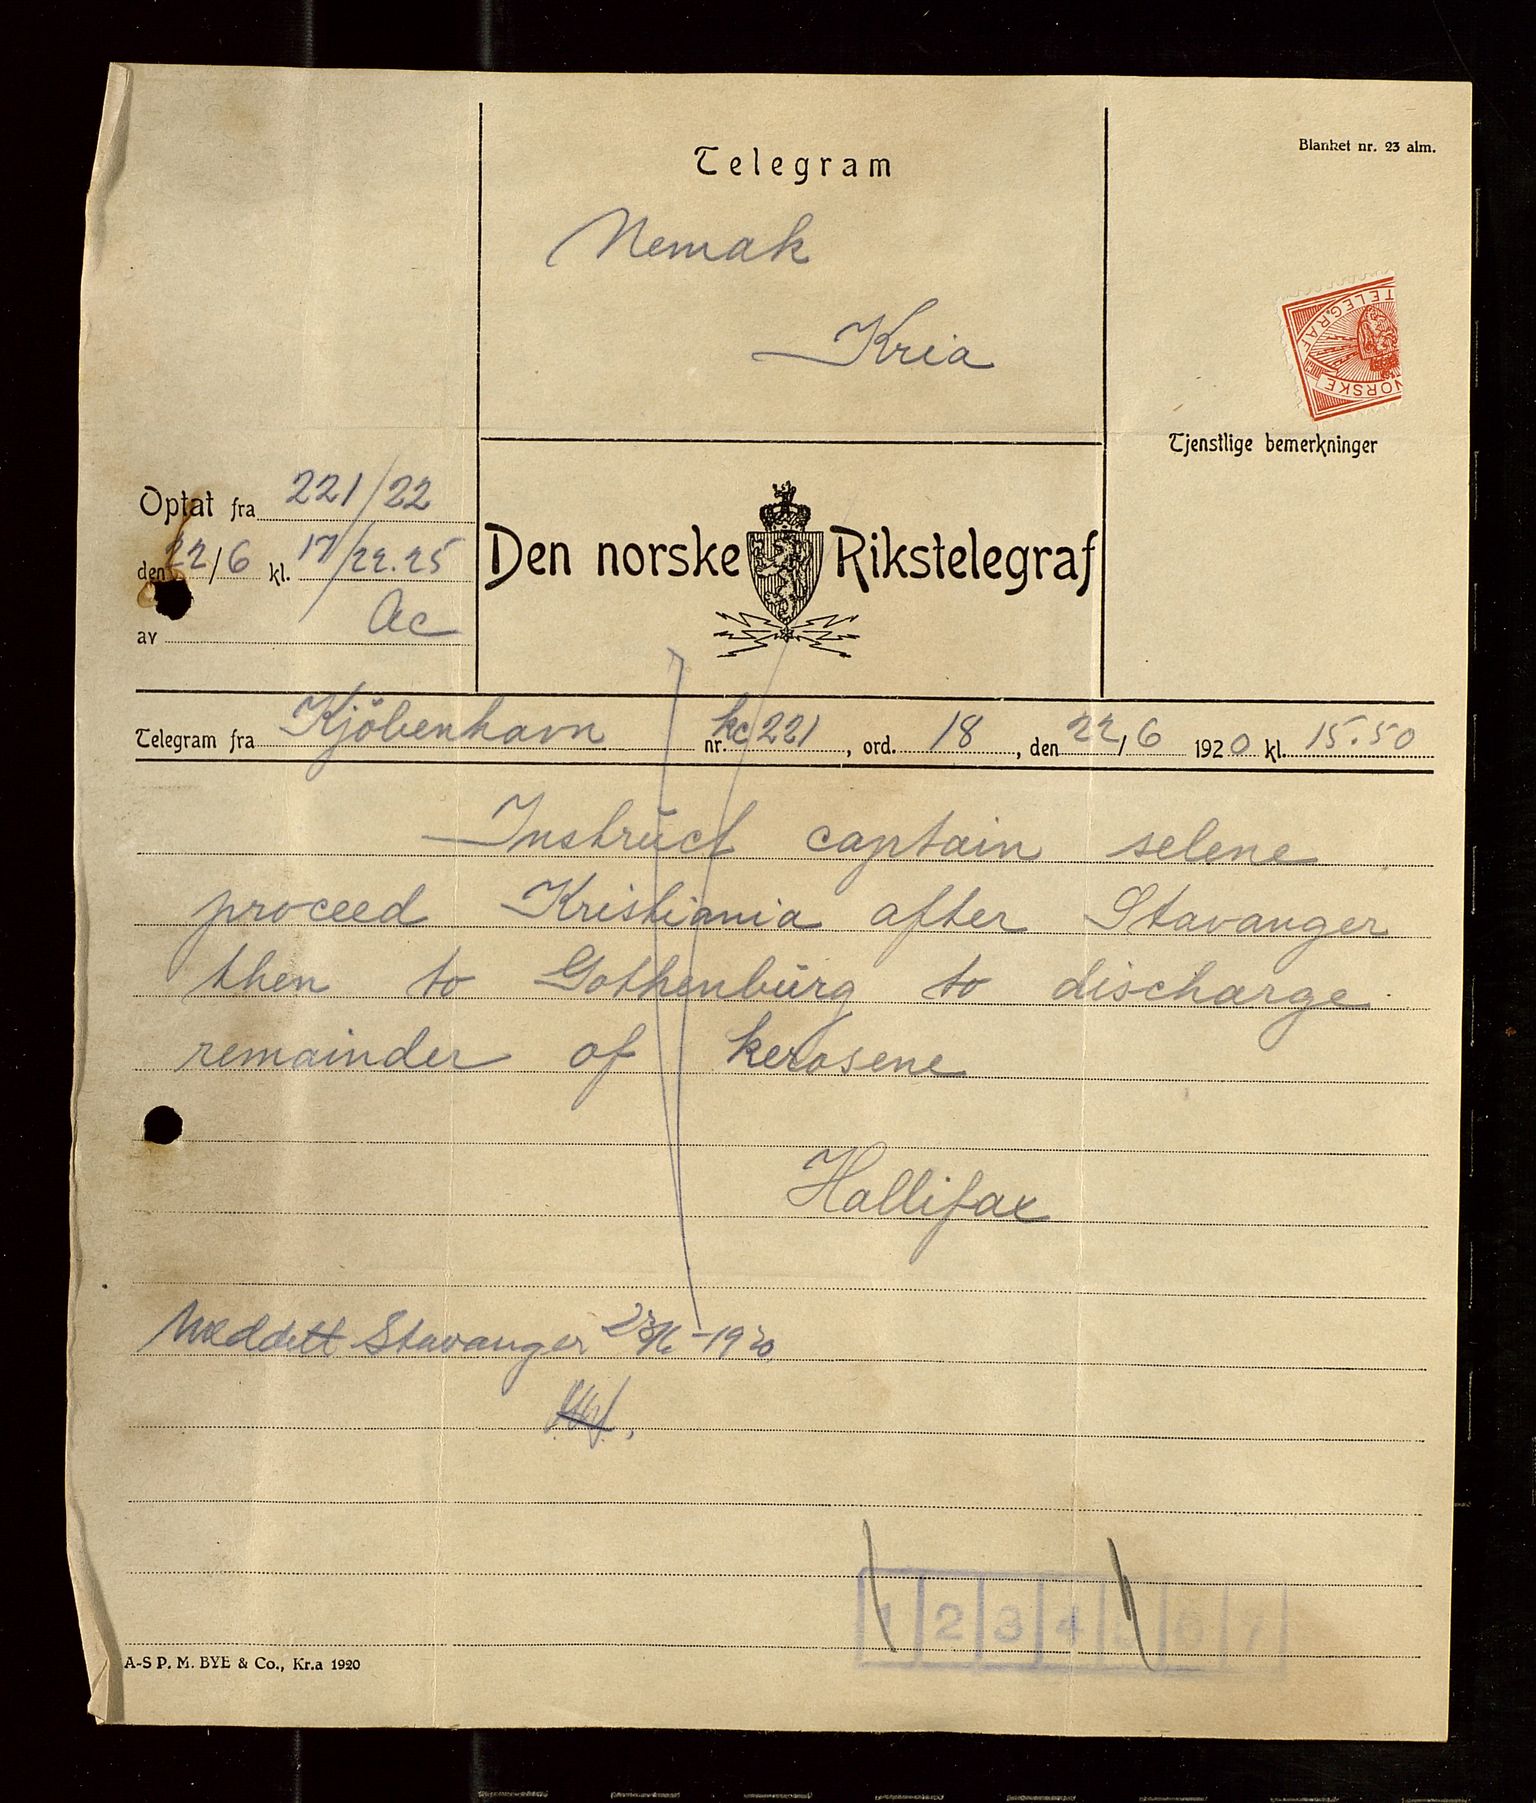 Telegram
Blanket nr. 23 alm.
Nemak
Kria
NORSKE TELEGRAF
Tjenstlige bemerkninger
Optat fra 221/22
den 22/6 kl. 17/22.25
av Ac
Den norske Rikstelegraf
Telegram fra Kjöbenhavn nr. kc 221, ord. 18, den 22/6 1920 kl. 15.50
Instruct captain selene
proceed Kristiania after Stavanger
then to Gothenburg to discharge
remainder of kerosene
Hallifax
Meddelt Stavanger 23/6-1920.
1 2 3 4 5 6 7
A-S P. M. BYE & Co., Kr.a 1920